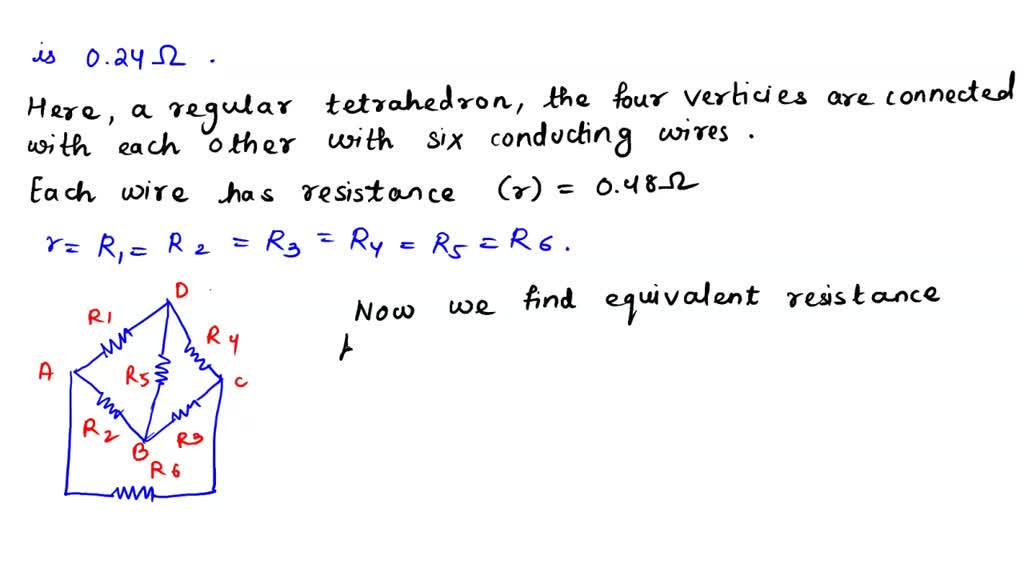 is 0.24Ω .
Here, a regular tetrahedron, the four verticies are connected
with each other with six conducting wires .
Each wire has resistance (r) = 0.48Ω
r = R1 = R2 = R3 = R4 = R5 = R6 .
D
R1
R4
A
R5
C
R2
R3
B
R6
Now we find equivalent resistance